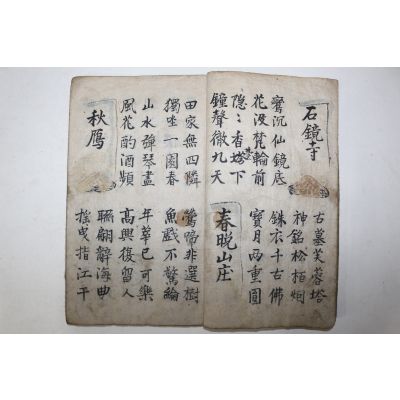 石鏡寺
古墓芙蓉塔
神銘松栢烟
鸞沉仙鏡底
花没梵輪前
銖衣千古佛
寶月兩重圓
隱〻香塔下
鐘聲徹九天
春晚山庄
田家無四隣
獨坐一園春
鶯啼非選樹
魚戲不驚綸
山水彈琴盡
風花酌酒頻
年華已可樂
高興復留人
秋鴈
聯翩辭海曲
搖曳指江干